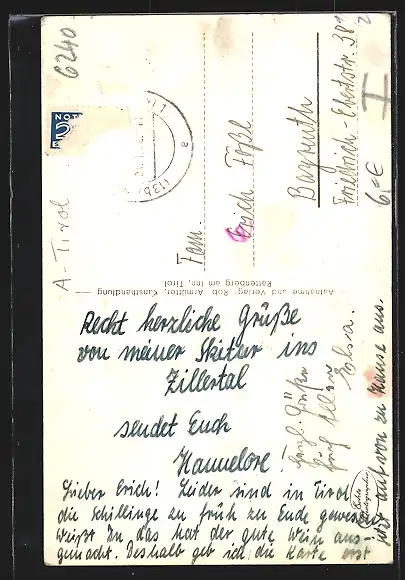 Recht herzliche Grüße
von meiner Skitur ins
Zillertal
sendet Euch
Hannelore!
Lieber Erich! Leider sind in Tirol
die Schillinge zu früh zu Ende gewesen.
Weißt Du, das hat der gute Wein aus-
gemacht. Deshalb geb ich die Karte erst
jetzt auf von zu Hause aus.
Herzl. Grüße
Euch allen
Elsa.
Aufnahme und Verlag: Rob. Armütter, Kunsthandlung
Rattenberg am Inn, Tirol
Fam.
Erich Fößl
Bayreuth
Friedrich-Ebertstr. 38
6,-€
I
A-Tirol
6240
NOT
2
Echte